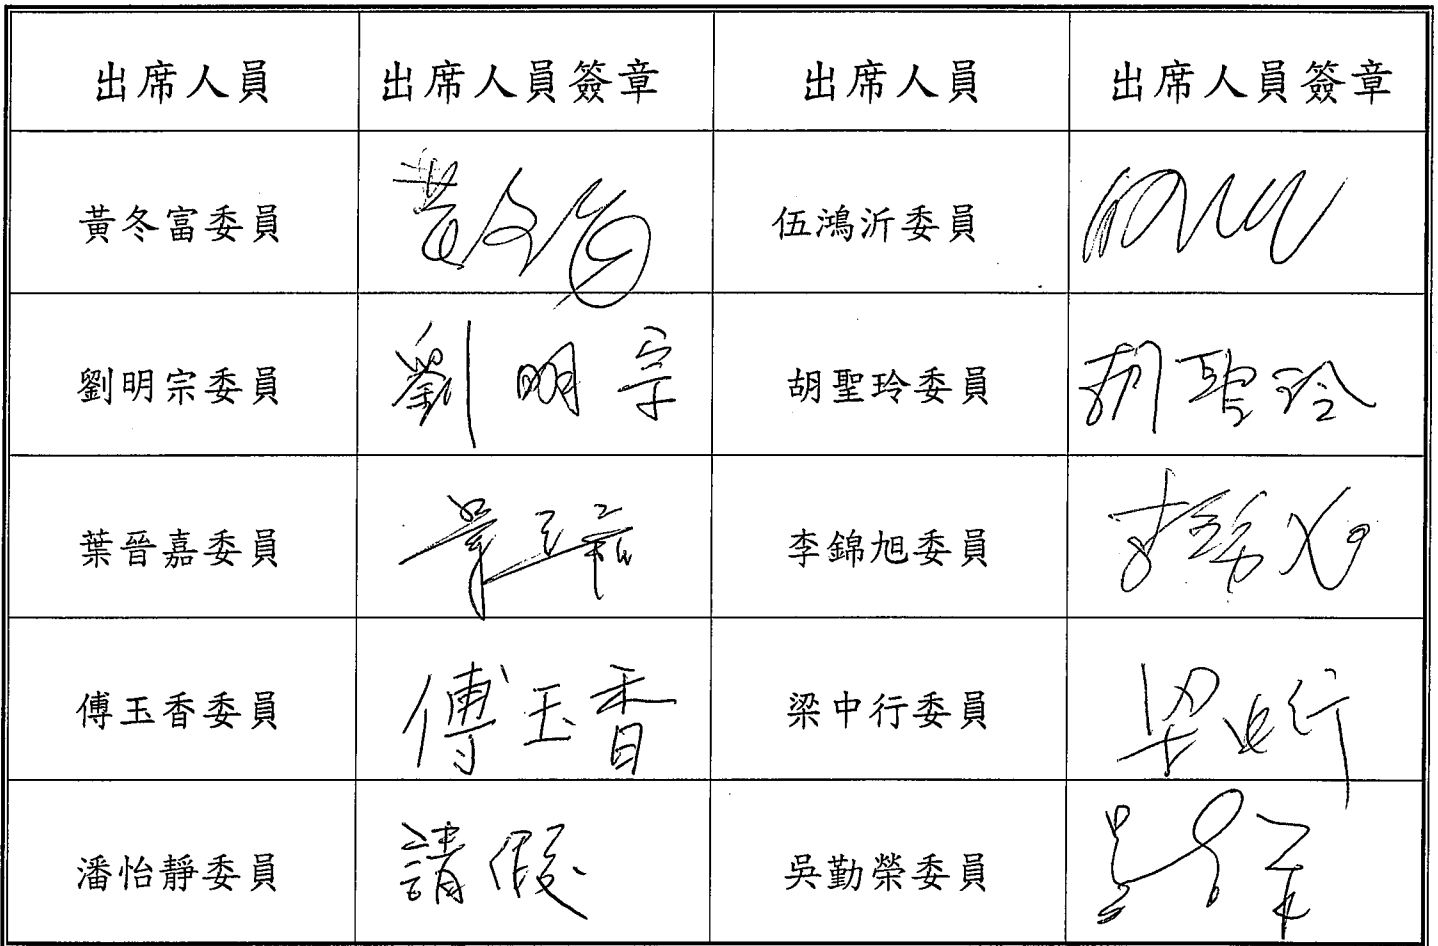 出席人員 出席人員簽章 出席人員 出席人員簽章
黃冬富委員 伍鴻沂委員
劉明宗委員 劉明宗 胡聖玲委員 胡聖玲
葉晉嘉委員 李錦旭委員
傅玉香委員 傅玉香 梁中行委員 梁中行
潘怡靜委員 請假 吳勤榮委員